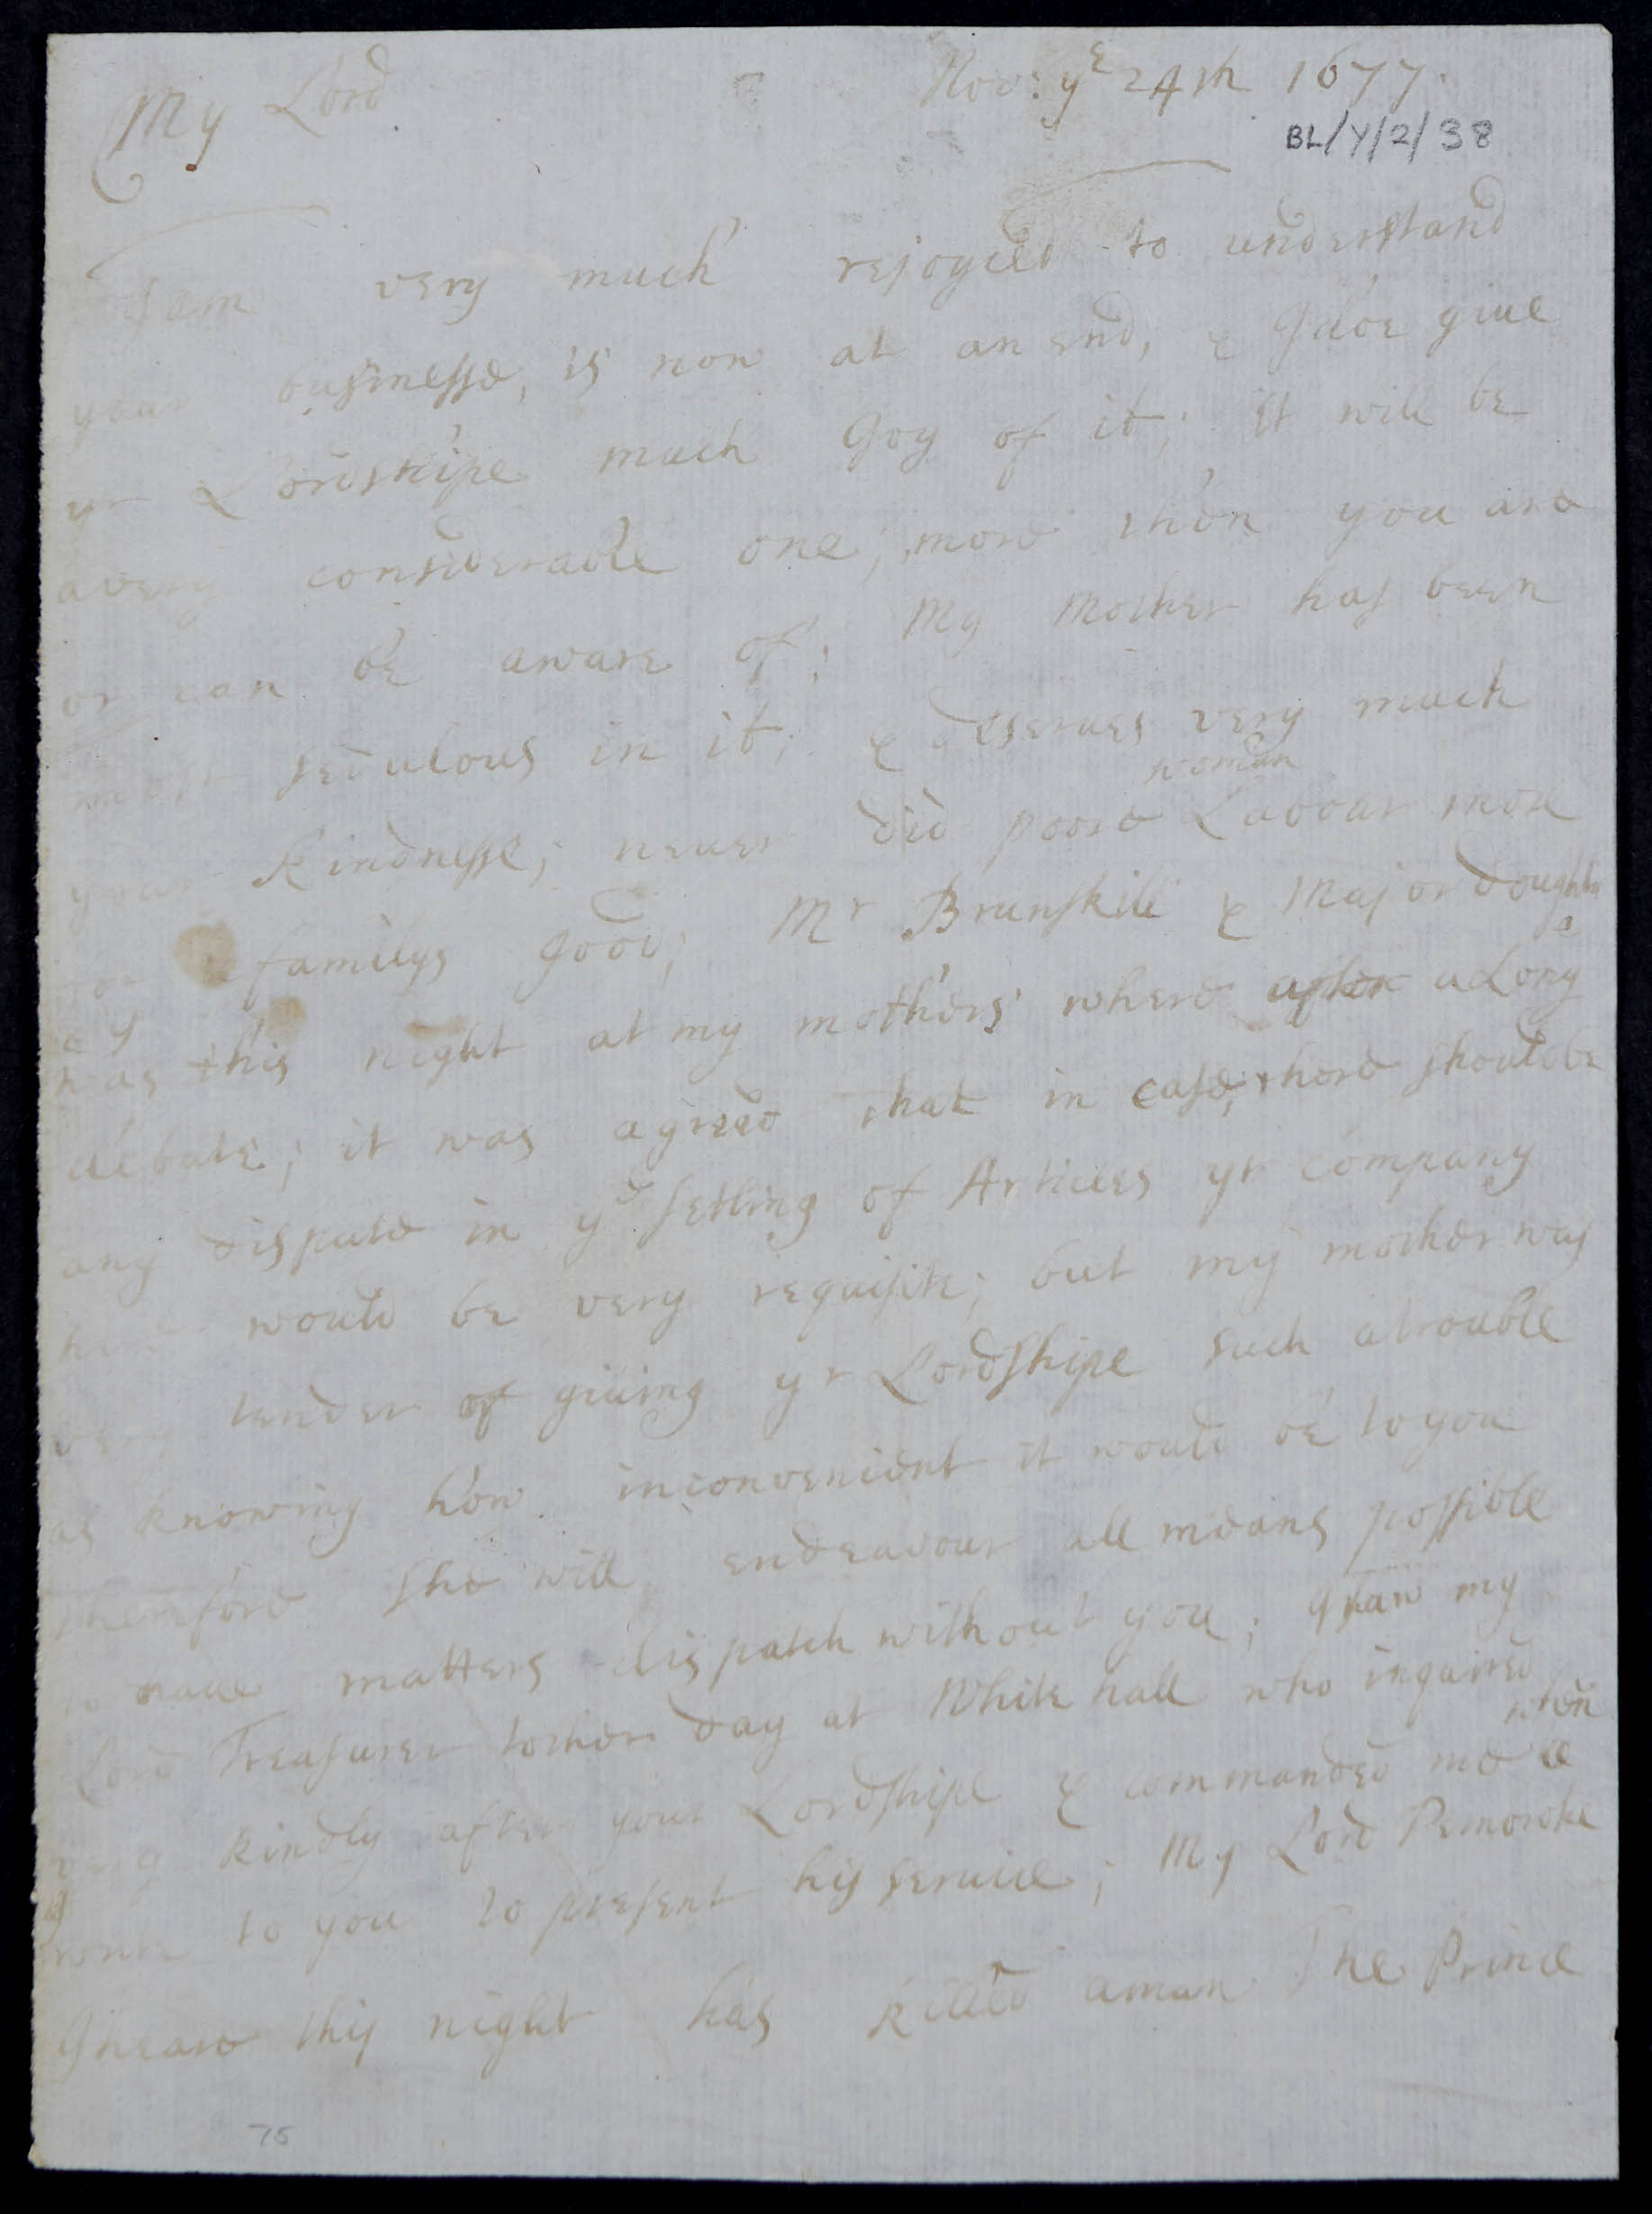 My Lord
Nov: ye 24th 1677.
BL/Y/2/38
I am very much rejoyced to understand
your businesse, is now at an end, & I doe giue
yr Lordshipe much Joy of it; it will be
a very considerable one, more then you are
or can be aware of; My Mother has been
most sedulous in it; & deserues very much
your kindnesse; neuer did poore woman Labour more
for a familys good; Mr Brunskill & Major doughty
was this night at my mothers where after a Long
debate; it was agreed that in case, there should be
any dispute in ye setling of Articles yr company
here would be very requisite; but my mother was
very tender of giuing yr Lordshipe such a trouble
as knowing how inconvenient it would be to you
therefore she will endeavour all means possible
to haue matters dispatch without you; I saw my
Lord Treasurer tother day at White hall who inquired
very kindly after your Lordshipe & commanded me when
I writt to you to present his seruice; My Lord Pembroke
I heare this night has killed a man The Prince
75